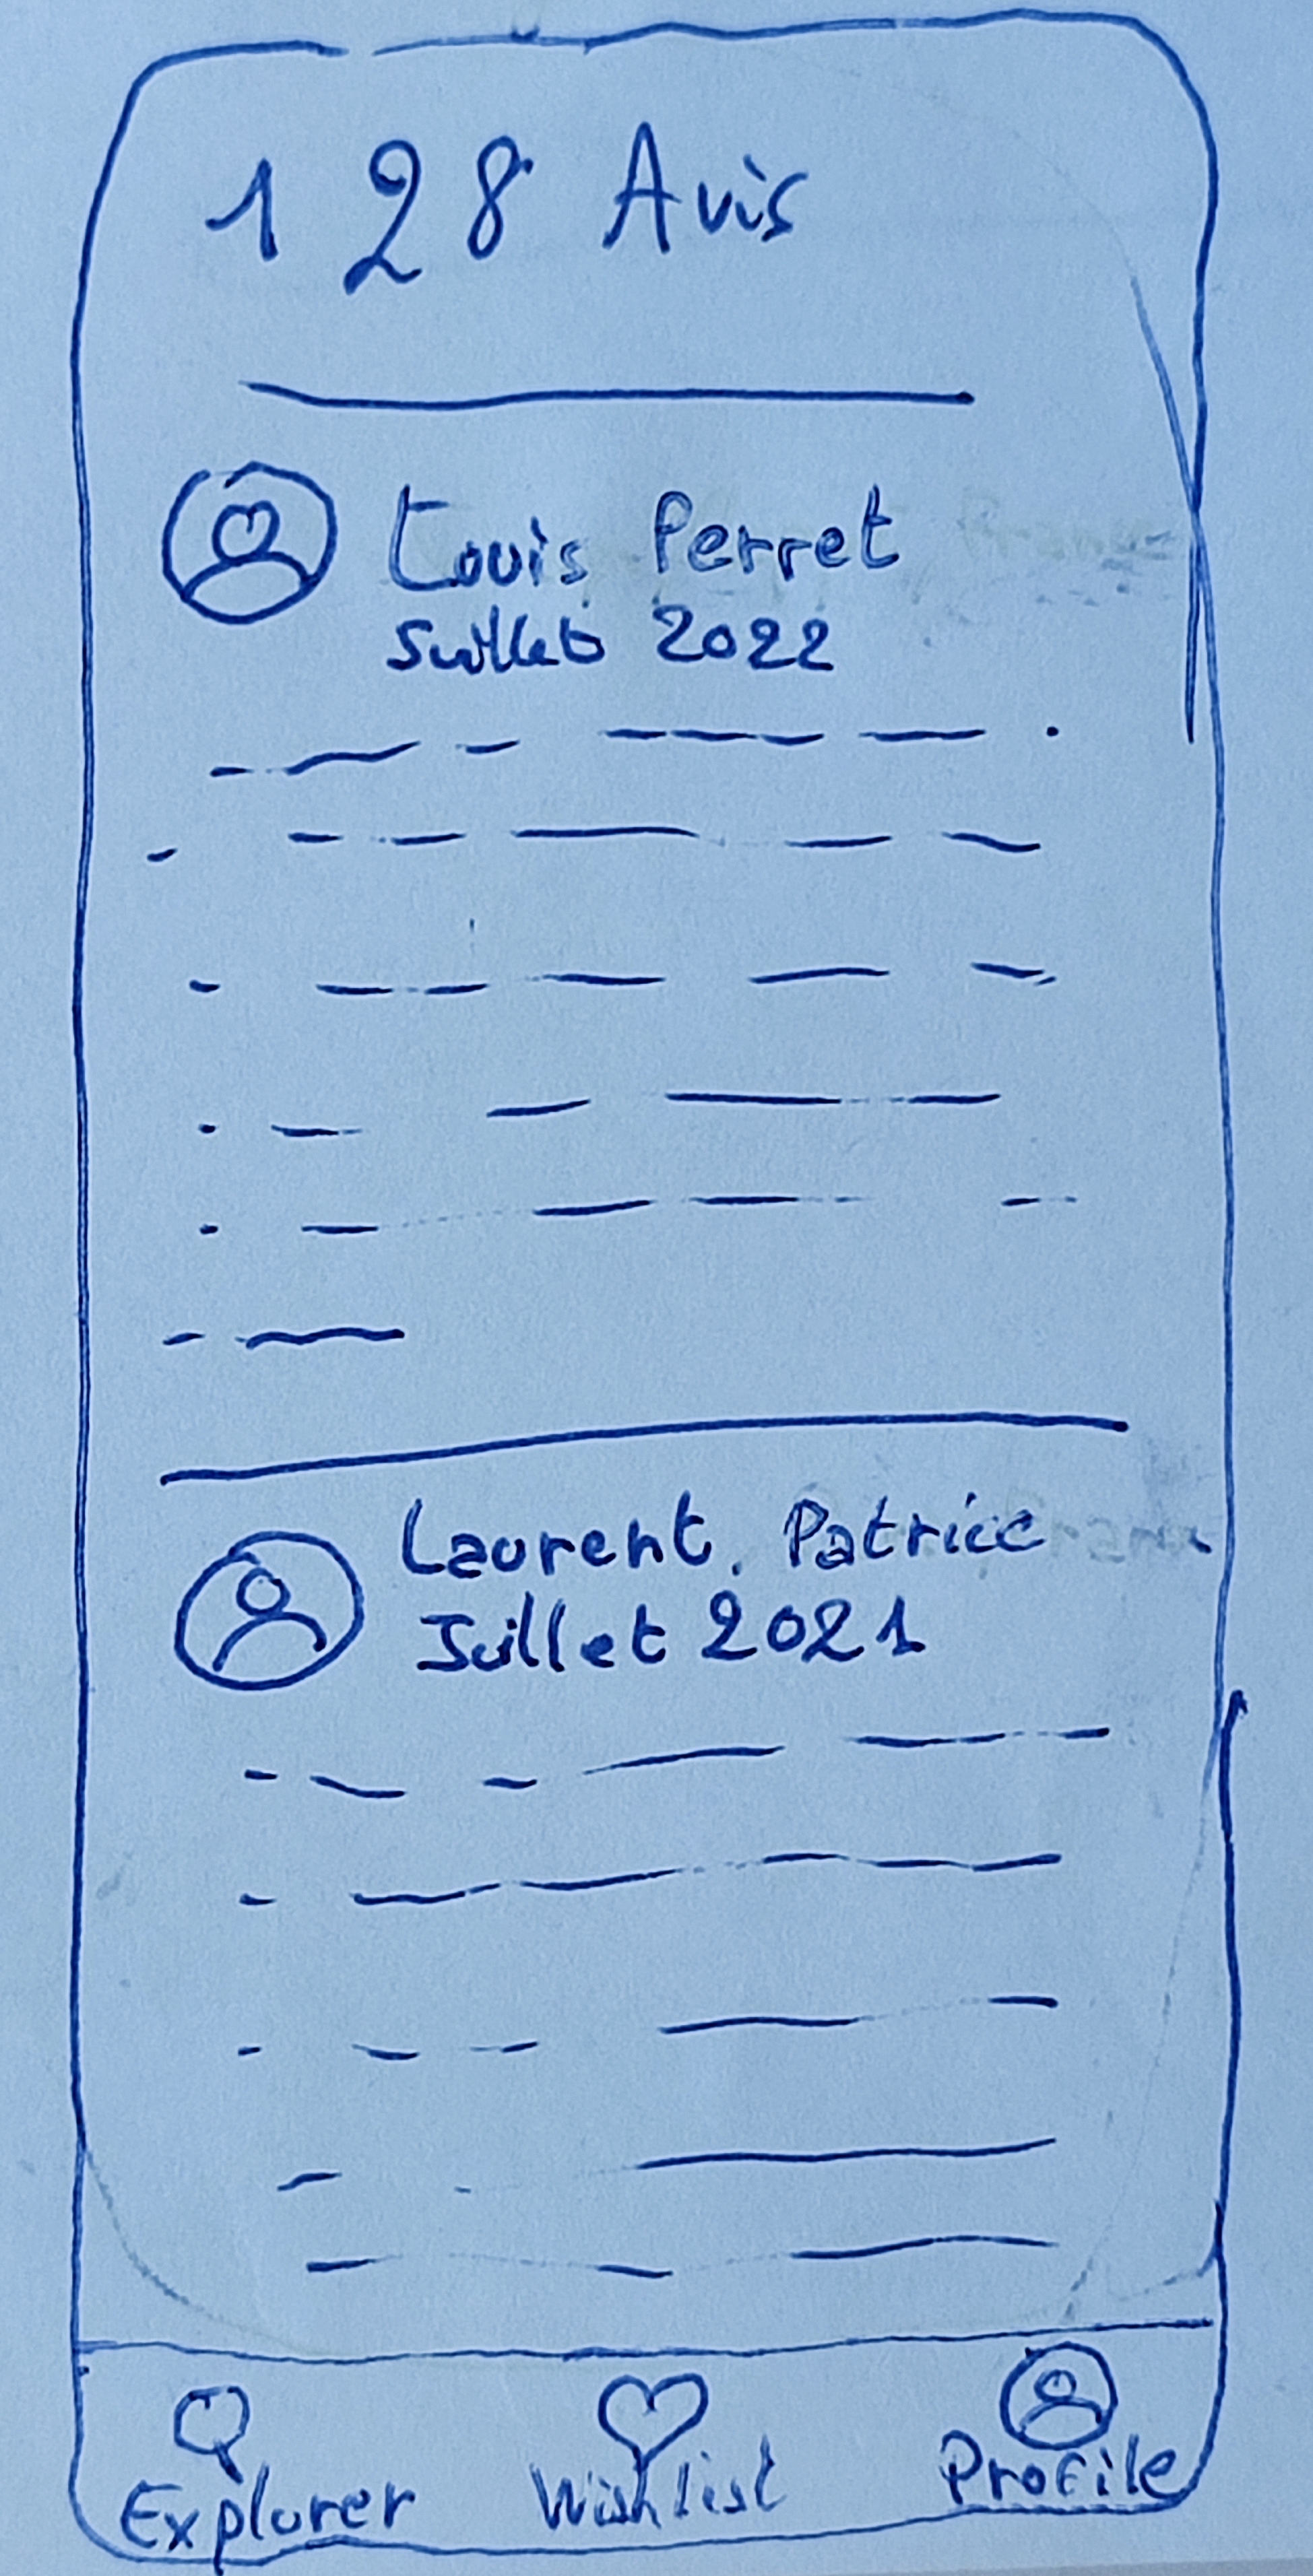 128 Avis
Louis Perret
Juillet 2022
Laurent. Patrice
Juillet 2021
Explorer
Wishlist
Profile